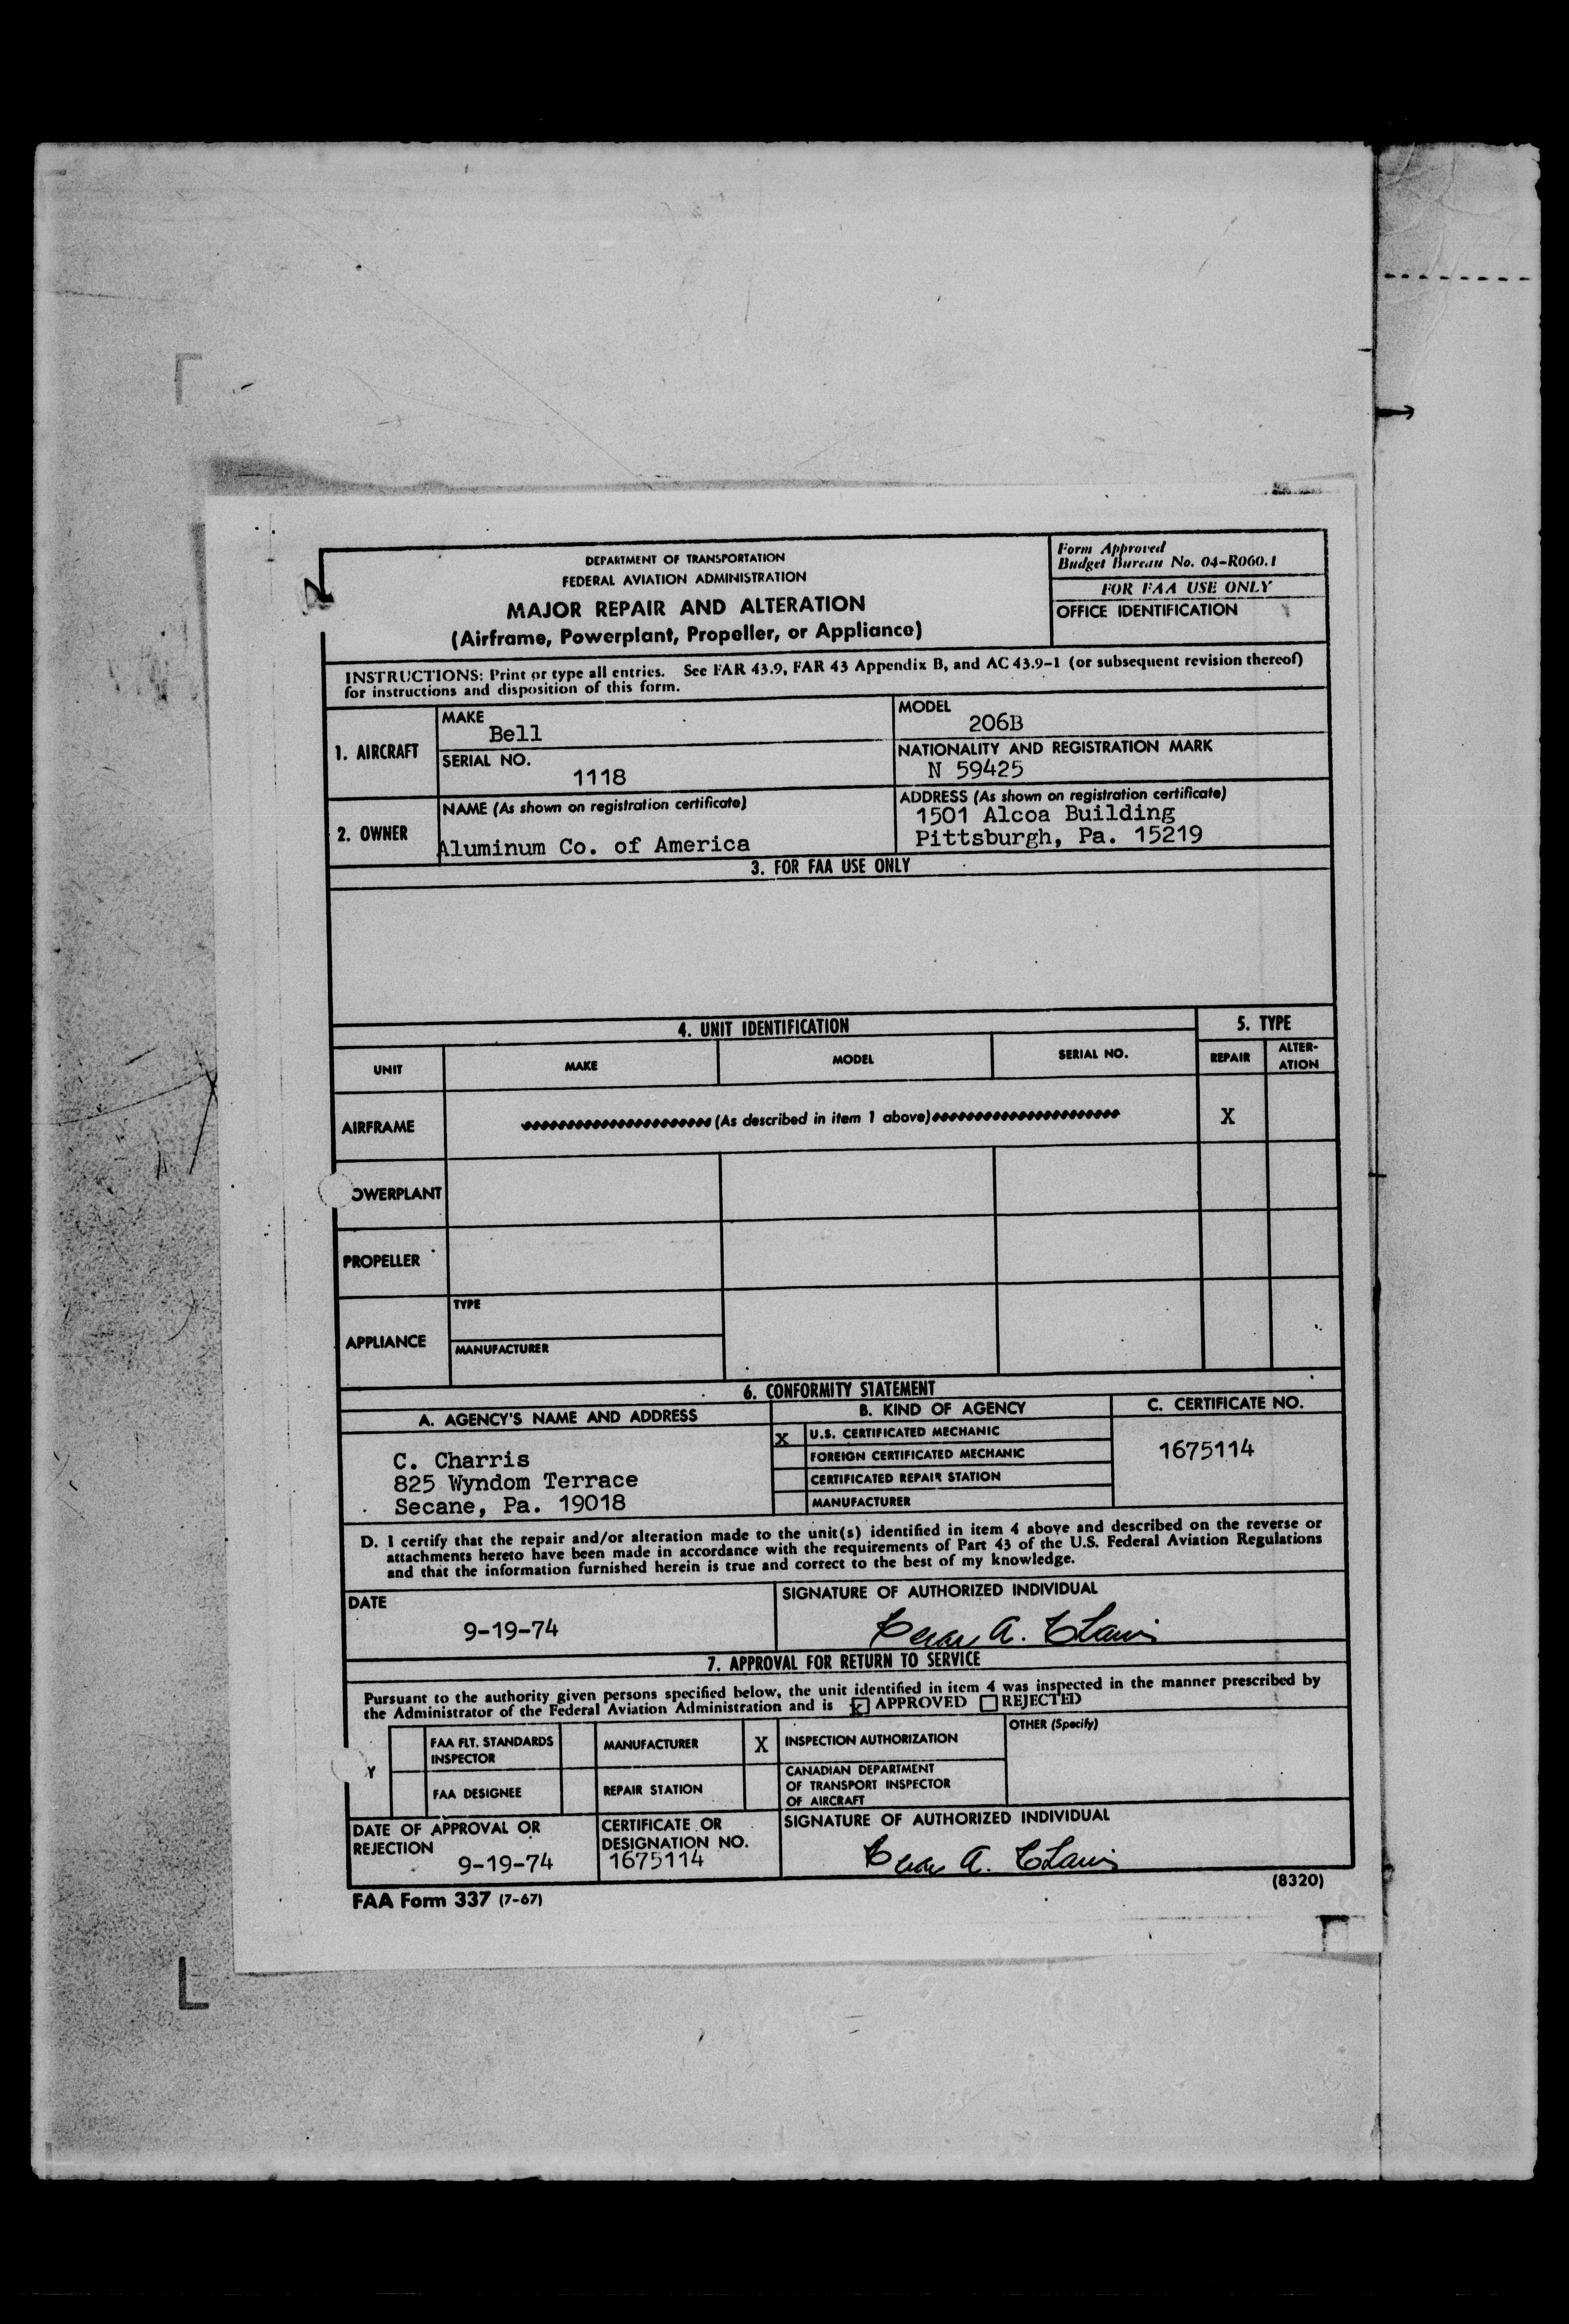 DEPARTMENT OF TRANSPORTATION
FEDERAL AVIATION ADMINISTRATION
MAJOR REPAIR AND ALTERATION
(Airframe, Powerplant, Propeller, or Appliance)
Form Approved
Budget Bureau No. 04-R060.1
FOR FAA USE ONLY
OFFICE IDENTIFICATION
INSTRUCTIONS: Print or type all entries. See FAR 43.9, FAR 43 Appendix B, and AC 43.9-1 (or subsequent revision thereof)
for instructions and disposition of this form.
1. AIRCRAFT
MAKE
Bell
MODEL
206B
SERIAL NO.
1118
NATIONALITY AND REGISTRATION MARK
N 59425
2. OWNER
NAME (As shown on registration certificate)
Aluminum Co. of America
ADDRESS (As shown on registration certificate)
1501 Alcoa Building
Pittsburgh, Pa. 15219
3. FOR FAA USE ONLY
4. UNIT IDENTIFICATION
5. TYPE
UNIT
MAKE
MODEL
SERIAL NO.
REPAIR
ALTER-
ATION
AIRFRAME
(As described in item 1 above)
X
OWERPLANT
PROPELLER
APPLIANCE
TYPE
MANUFACTURER
6. CONFORMITY STATEMENT
A. AGENCY'S NAME AND ADDRESS
B. KIND OF AGENCY
C. CERTIFICATE NO.
C. Charris
825 Wyndom Terrace
Secane, Pa. 19018
X U.S. CERTIFICATED MECHANIC
FOREIGN CERTIFICATED MECHANIC
CERTIFICATED REPAIR STATION
MANUFACTURER
1675114
D. I certify that the repair and/or alteration made to the unit(s) identified in item 4 above and described on the reverse or
attachments hereto have been made in accordance with the requirements of Part 43 of the U.S. Federal Aviation Regulations
and that the information furnished herein is true and correct to the best of my knowledge.
DATE
9-19-74
SIGNATURE OF AUTHORIZED INDIVIDUAL
7. APPROVAL FOR RETURN TO SERVICE
Pursuant to the authority given persons specified below, the unit identified in item 4 was inspected in the manner prescribed by
the Administrator of the Federal Aviation Administration and is X APPROVED REJECTED
Y
FAA FLT. STANDARDS
INSPECTOR
MANUFACTURER
X INSPECTION AUTHORIZATION
OTHER (Specify)
FAA DESIGNEE
REPAIR STATION
CANADIAN DEPARTMENT
OF TRANSPORT INSPECTOR
OF AIRCRAFT
DATE OF APPROVAL OR
REJECTION
9-19-74
CERTIFICATE OR
DESIGNATION NO.
1675114
SIGNATURE OF AUTHORIZED INDIVIDUAL
FAA Form 337 (7-67)
(8320)